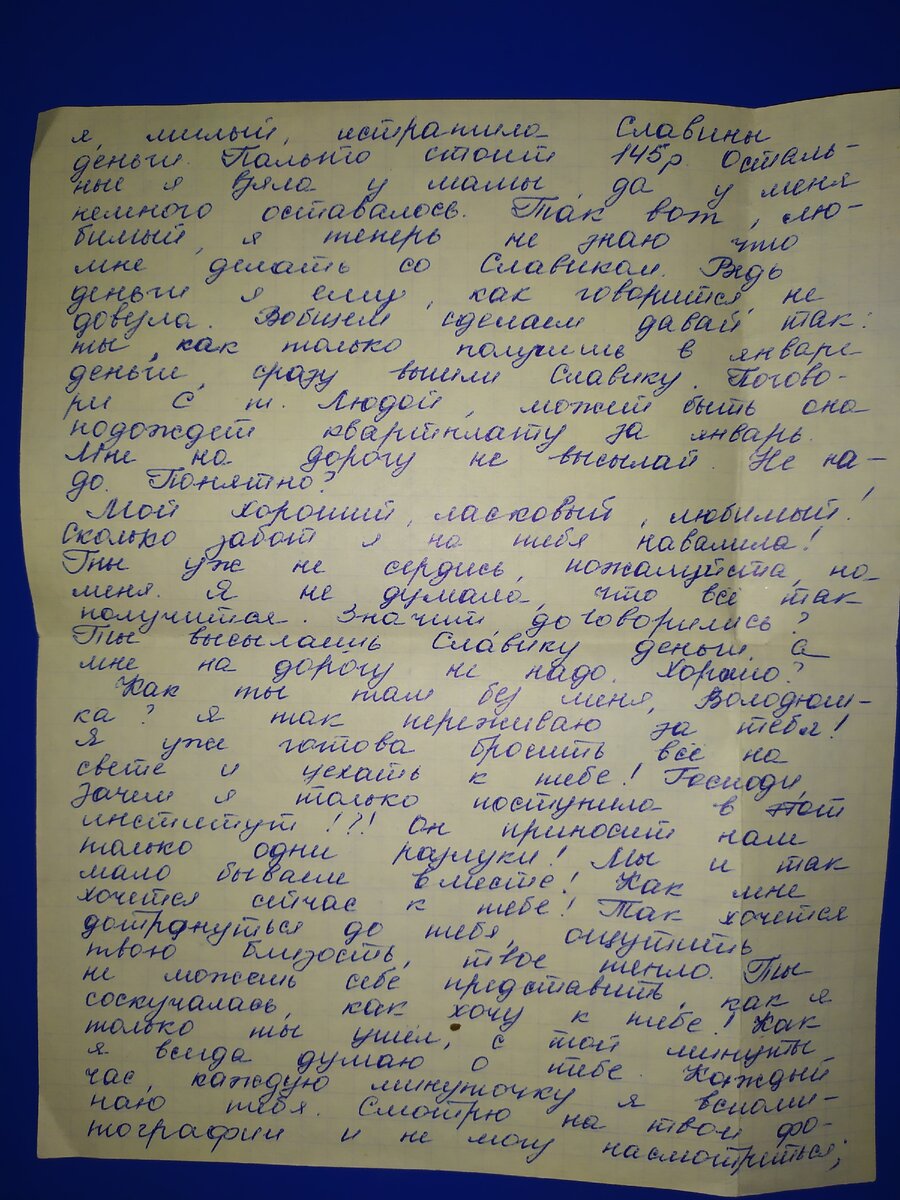 я, милый, истратила Славины
деньги. Пальто стоит 145р. Осталь-
ные я взяла у мамы, да у меня
немного оставалось. Так вот, лю-
бимый, я теперь не знаю что
мне делать со Славиком. Ведь
деньги я ему, как говорится, не
довезла. Вобщем сделаем давай так:
ты, как только получишь в январе
деньги, сразу вышли Славику. Погово-
ри с т. Людой, может быть она
подождет квартплату за январь.
Мне на дорогу не высылай. Не на-
до. Понятно?
Мой хороший, ласковый, любимый!
Сколько забот я на тебя навалила!
Ты уж не сердись, пожалуйста, на
меня. Я не думала, что всё так
получится. Значит договорились?
Ты высылаешь Славику деньги, а
мне на дорогу не надо. Хорошо?
Как ты там без меня, Володюш-
ка? Я так переживаю за тебя!
Я уже готова бросить всё на
свете и уехать к тебе! Господи,
зачем я только поступила в этот
институт!?! Он приносит нам
только одни разлуки! Мы и так
мало бываем вместе! Как мне
хочется сейчас к тебе! Так хочется
дотрануться до тебя, ощутить
твою близость, твое тепло. Ты
не можешь себе представить, как я
соскучалась, как хочу к тебе! Как
только ты ушел, с той минуты
я всегда думаю о тебе. Каждый
час, каждую минуточку я вспоми-
наю тебя. Смотрю на твои фо-
тографии и не могу насмотреться;